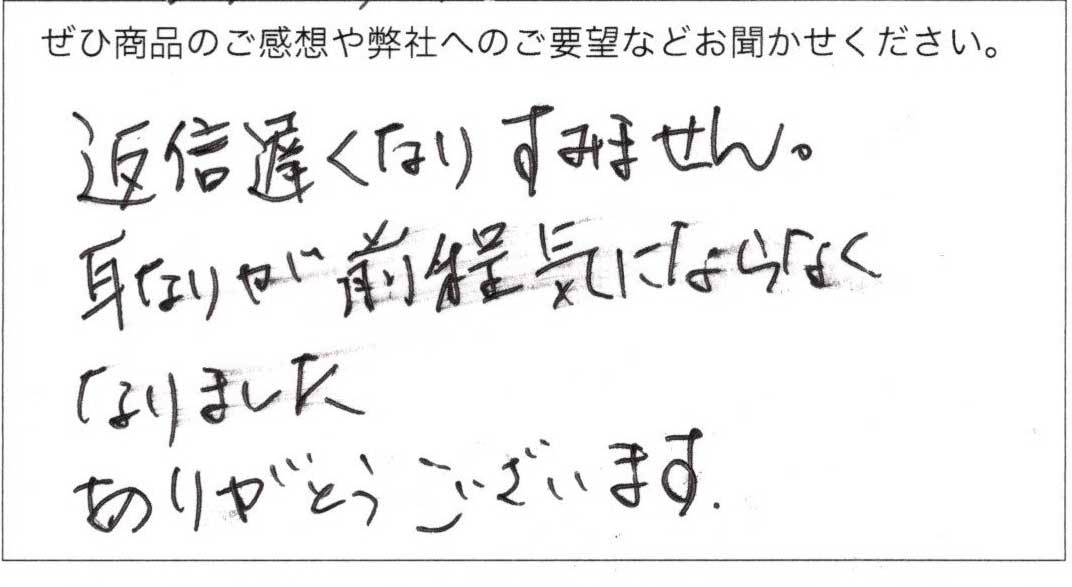 ぜひ商品のご感想や弊社へのご要望などお聞かせください。
返信遅くなりすみません。
耳なりが前程気にならなく
なりました
ありがとうございます.